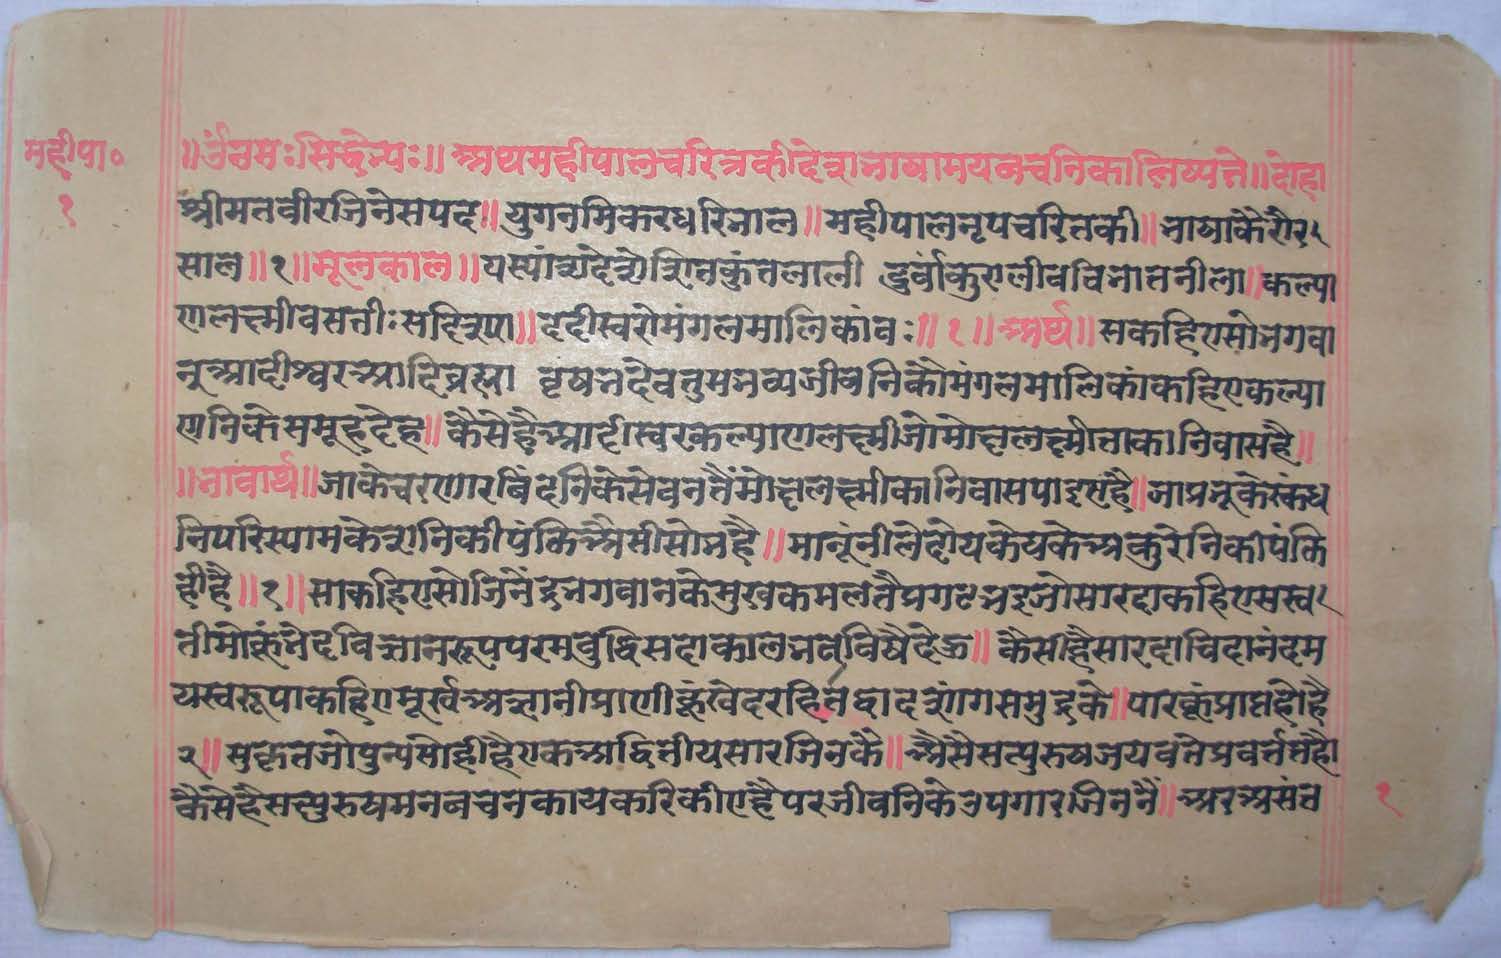 महीपा०
१
॥ ॐ नमः सिद्धेभ्यः ॥ अथ महीपालचरित्रकी देशभाषामय वचनिका लिष्यते ॥ दोहा
श्रीमतवीरजिनेसपद ॥ युगनमिकरधरिभाल ॥ महीपालनृपचरितकी ॥ भाषाकरौर
साल ॥ १ ॥ मूलकाल ॥ यस्यांशदेशेशितकुंतलाली दुर्वांकुरालीवविभातनीला ॥ कल्या
णलक्ष्मीवसतीः सदिश्या ॥ ददीस्वरोमंगलमालिकांवः ॥ १ ॥ अर्थ ॥ सकहिएसोभगवा
नूआदीश्वरआदिब्रह्मा वृषभदेवतुमभव्यजीवनिकौंमंगलमालिकांकहिएकल्या
णनिकेसमूहदेह ॥ कैसेहैआदीस्वरकल्याणलक्ष्मीजोमोक्षलक्ष्मीताकानिवासहै ॥
॥ भावार्थ ॥ जाकेचरणारबिंदनिकेसेवनतैंमोक्षलक्ष्मीकानिवासपाइएहै ॥ जाप्रभूकेस्कंध
निपरिस्यामकेशनिकीपंक्तिअैसीसोभहै ॥ मानूंनीलेदोयकेयकेअकुरेनिकीपंक्ति
हीहै ॥ १ ॥ साकहिएसोजिनेंद्रभगवानकेमुखकमलतैप्रगटभइजोसारदाकहिएसस्वर
तीमोकूंभेदविज्ञानरूपपरमबुद्धिसदाकालभवविषैदेऊ ॥ कैसीहैसारदाचिदानंदम
यस्वरूपाकहिएमूर्खअज्ञानीप्राणीकूंखेदरहितद्वादशांगसमुद्रके ॥ पारकूंप्राप्तहोहै
२ ॥ सुकृतजोपुन्यसोहीहैएकअद्वितीयसारजिनकें ॥ अैसेसत्पुरुषजयवंतेप्रवर्त्ततहै
कैसेहैसत्पुरुषमनबचनकायकरिकीएहैपरजीवनिकेउपगारजिननैं ॥ अरअसंत
१